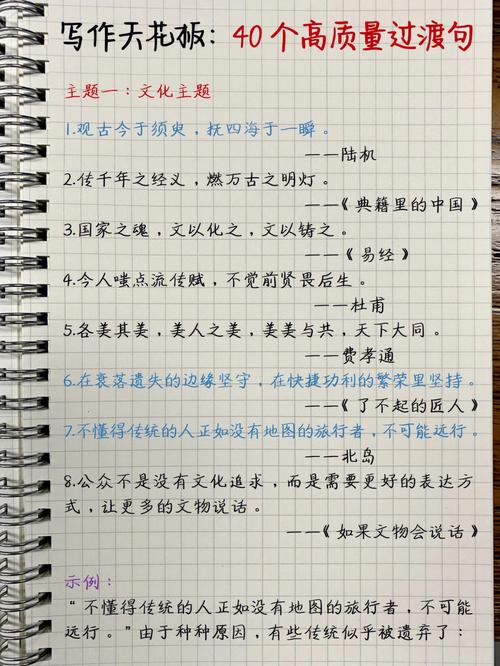 写作天花板：40个高质量过渡句
主题一：文化主题
1.观古今于须臾，抚四海于一瞬。
——陆机
2.传千年之经义，燃万古之明灯。
——《典籍里的中国》
3.国家之魂，文以化之，文以铸之。
——《易经》
4.今人嗤点流传赋，不觉前贤畏后生。
——杜甫
5.各美其美，美人之美，美美与共，天下大同。
——费孝通
6.在衰落遗失的边缘坚守，在快捷功利的繁荣里坚持。
——《了不起的匠人》
7.不懂得传统的人正如没有地图的旅行者，不可能远行。
——北岛
8.公众不是没有文化追求，而是需要更好的表达方
式，让更多的文物说话。
——《如果文物会说话》
示例：
“不懂得传统的人正如没有地图的旅行者，不可能
远行。”由于种种原因，有些传统似乎被遗弃了：